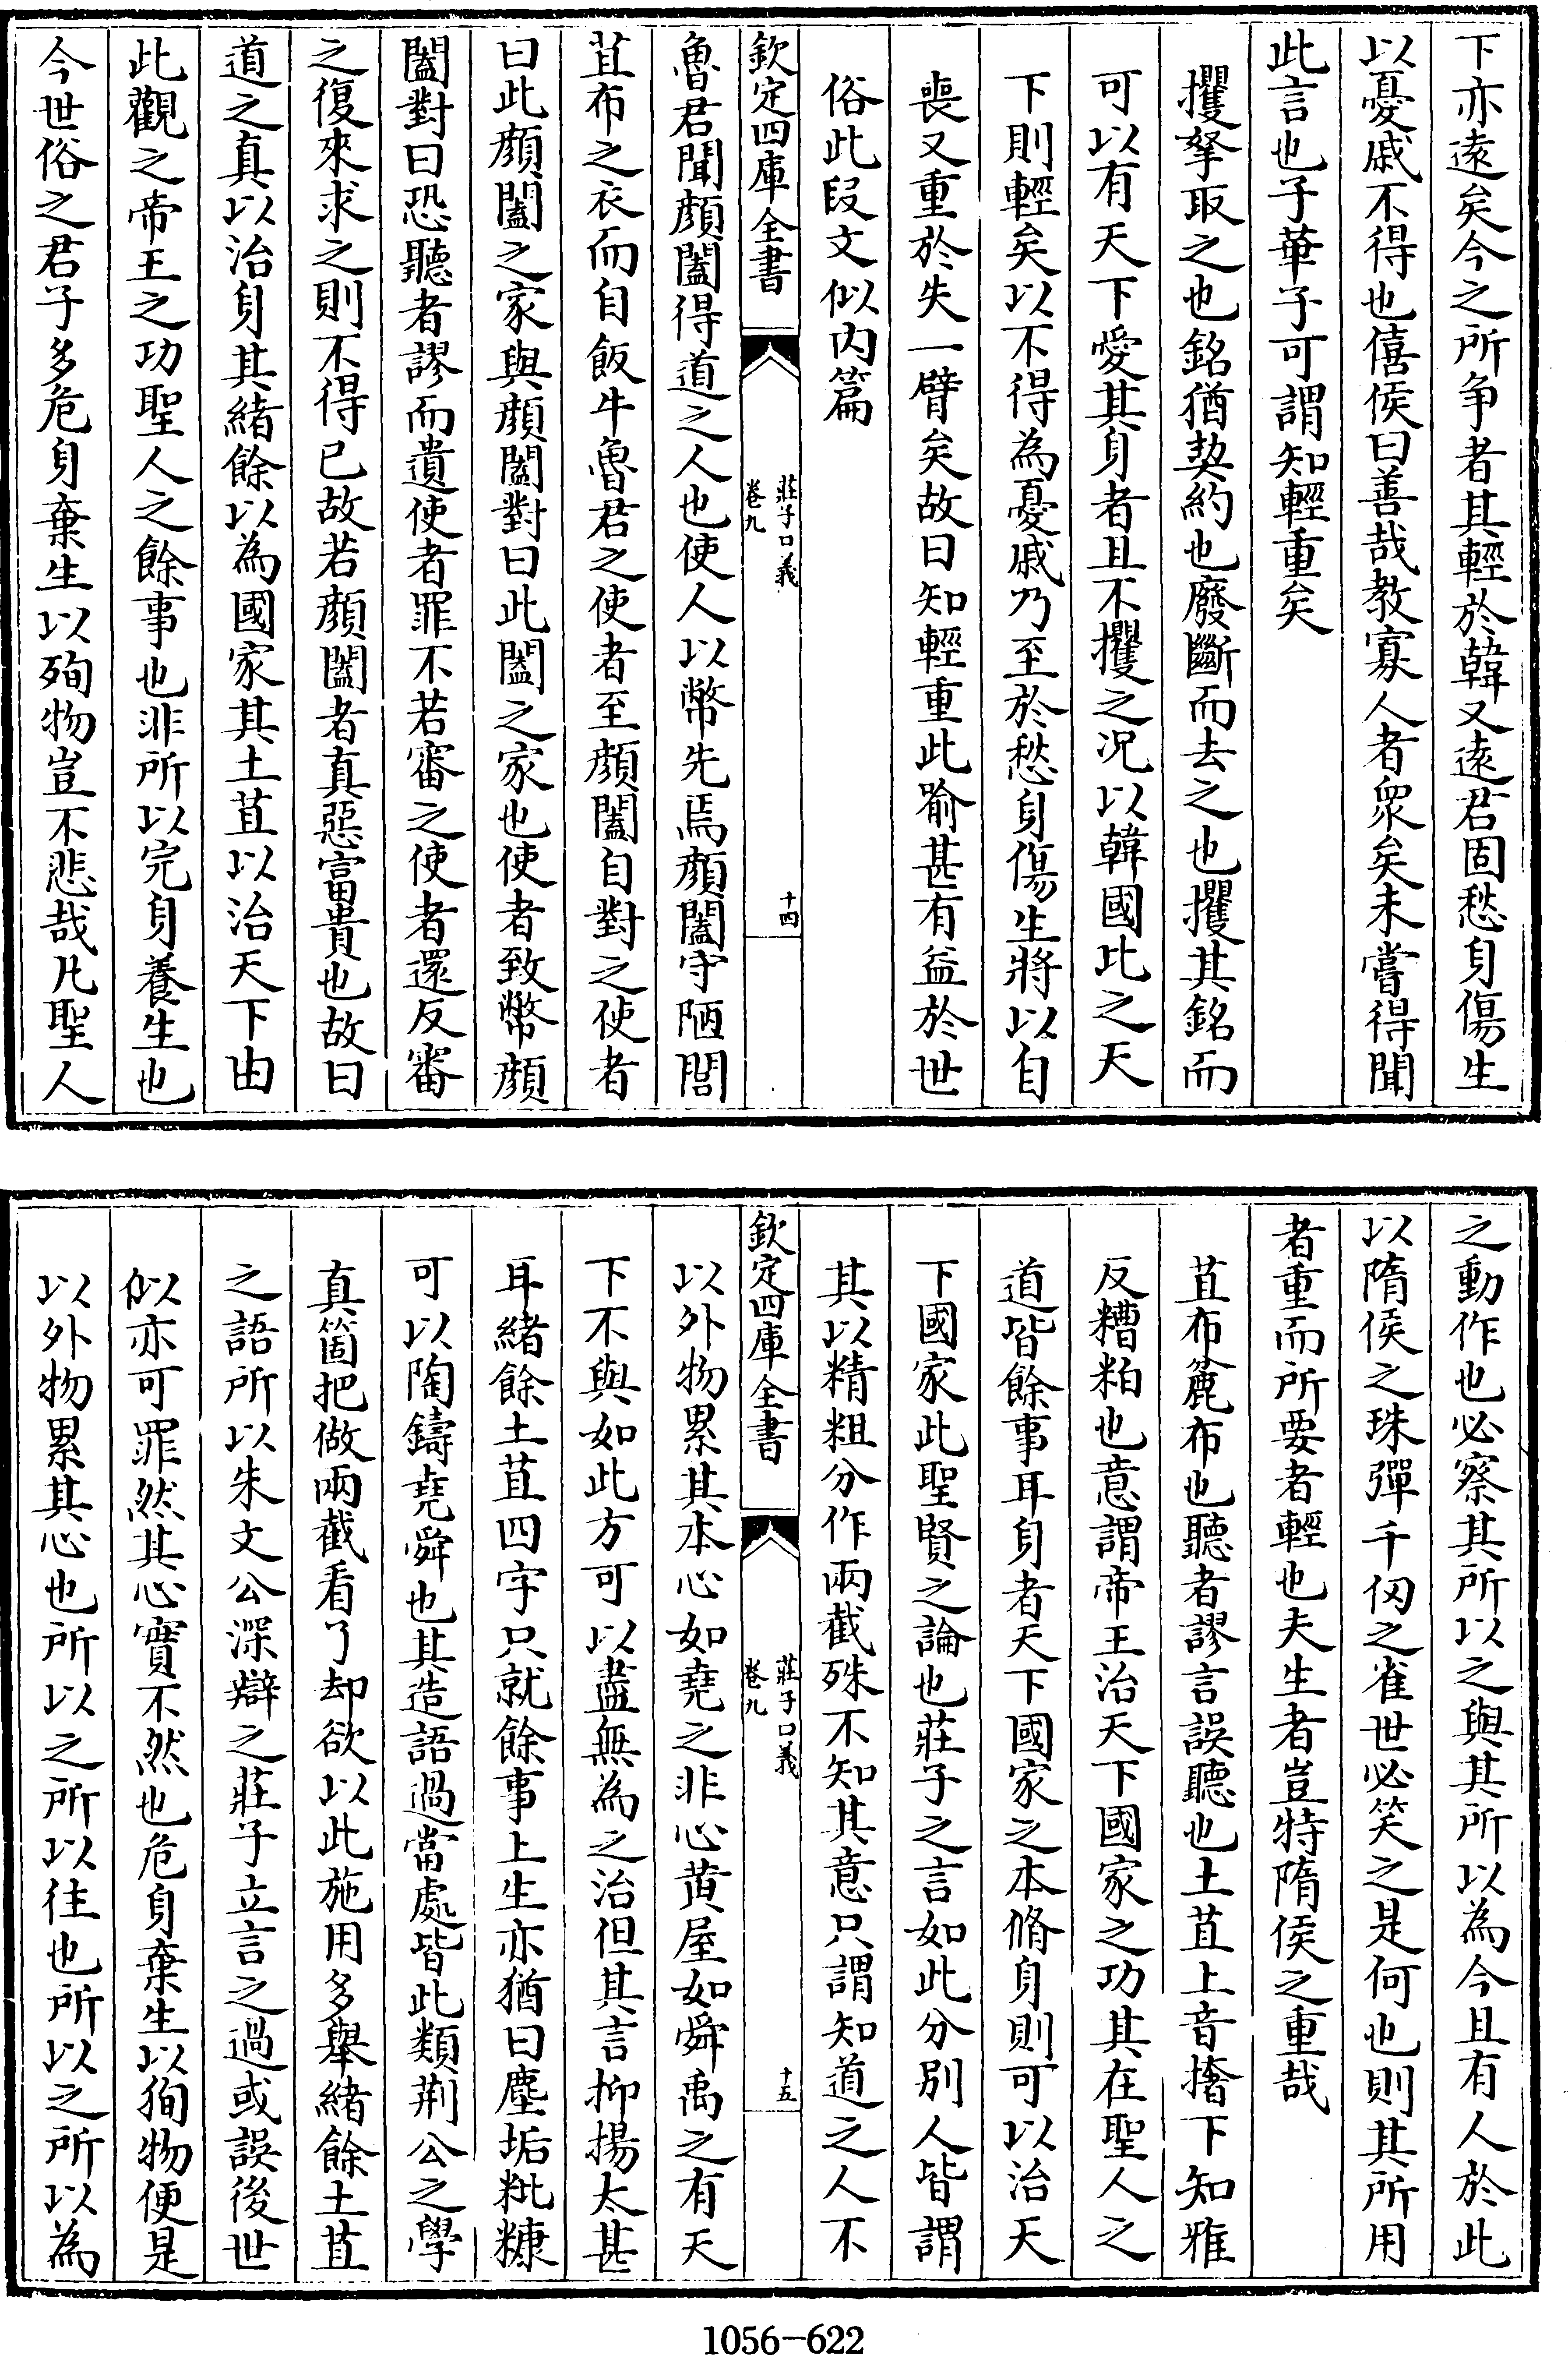 下亦遠矣今之所争者其輕於韓又遠君固愁身傷生
以憂戚不得也僖侯曰善哉教寡人者衆矣未嘗得聞
此言也子華子可謂知輕重矣
攫拏取之也銘猶契約也廢斷而去之也攫其銘而
可以有天下愛其身者且不攫之况以韓國比之天
下則輕矣以不得為憂戚乃至於愁身傷生將以自
喪又重於失一臂矣故曰知輕重此喻甚有益於世
俗此段文似内篇
欽定四庫全書
莊子口義
卷九
十四
魯君聞顔闔得道之人也使人以幣先焉顔闔守陋閭
苴布之衣而自飯牛魯君之使者至顔闔自對之使者
曰此顔闔之家與顔闔對曰此闔之家也使者致幣顔
闔對曰恐聽者謬而遺使者罪不若審之使者還反審
之復來求之則不得已故若顔闔者真惡富貴也故曰
道之真以治身其緒餘以為國家其土苴以治天下由
此觀之帝王之功聖人之餘事也非所以完身養生也
今世俗之君子多危身棄生以殉物豈不悲哉凡聖人
之動作也必察其所以之與其所以為今且有人於此
以隋侯之珠彈千仞之雀世必笑之是何也則其所用
者重而所要者輕也夫生者豈特隋侯之重哉
苴布麄布也聽者謬言誤聽也土苴上音撦下知雅
反糟粕也意謂帝王治天下國家之功其在聖人之
道皆餘事耳身者天下國家之本脩身則可以治天
下國家此聖賢之論也莊子之言如此分别人皆謂
其以精粗分作兩截殊不知其意只謂知道之人不
欽定四庫全書
莊子口義
卷九
十五
以外物累其本心如堯之非心黄屋如舜禹之有天
下不與如此方可以盡無為之治但其言抑揚太甚
耳緒餘土苴四字只就餘事上生亦猶曰塵垢粃糠
可以陶鑄堯舜也其造語過當處皆此類荆公之學
真箇把做兩截看了却欲以此施用多舉緒餘土苴
之語所以朱文公深辯之莊子立言之過或誤後世
似亦可罪然其心實不然也危身棄生以狥物便是
以外物累其心也所以之所以往也所以之所以為
1056-622